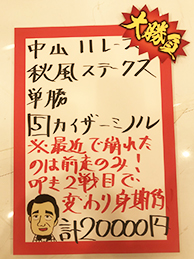 大勝負
中山11レース
秋風ステークス
単勝
5カイザーミノル
※最近で崩れた
のは前走のみ!
叩き2戦目で
変わり身期待
計20000円